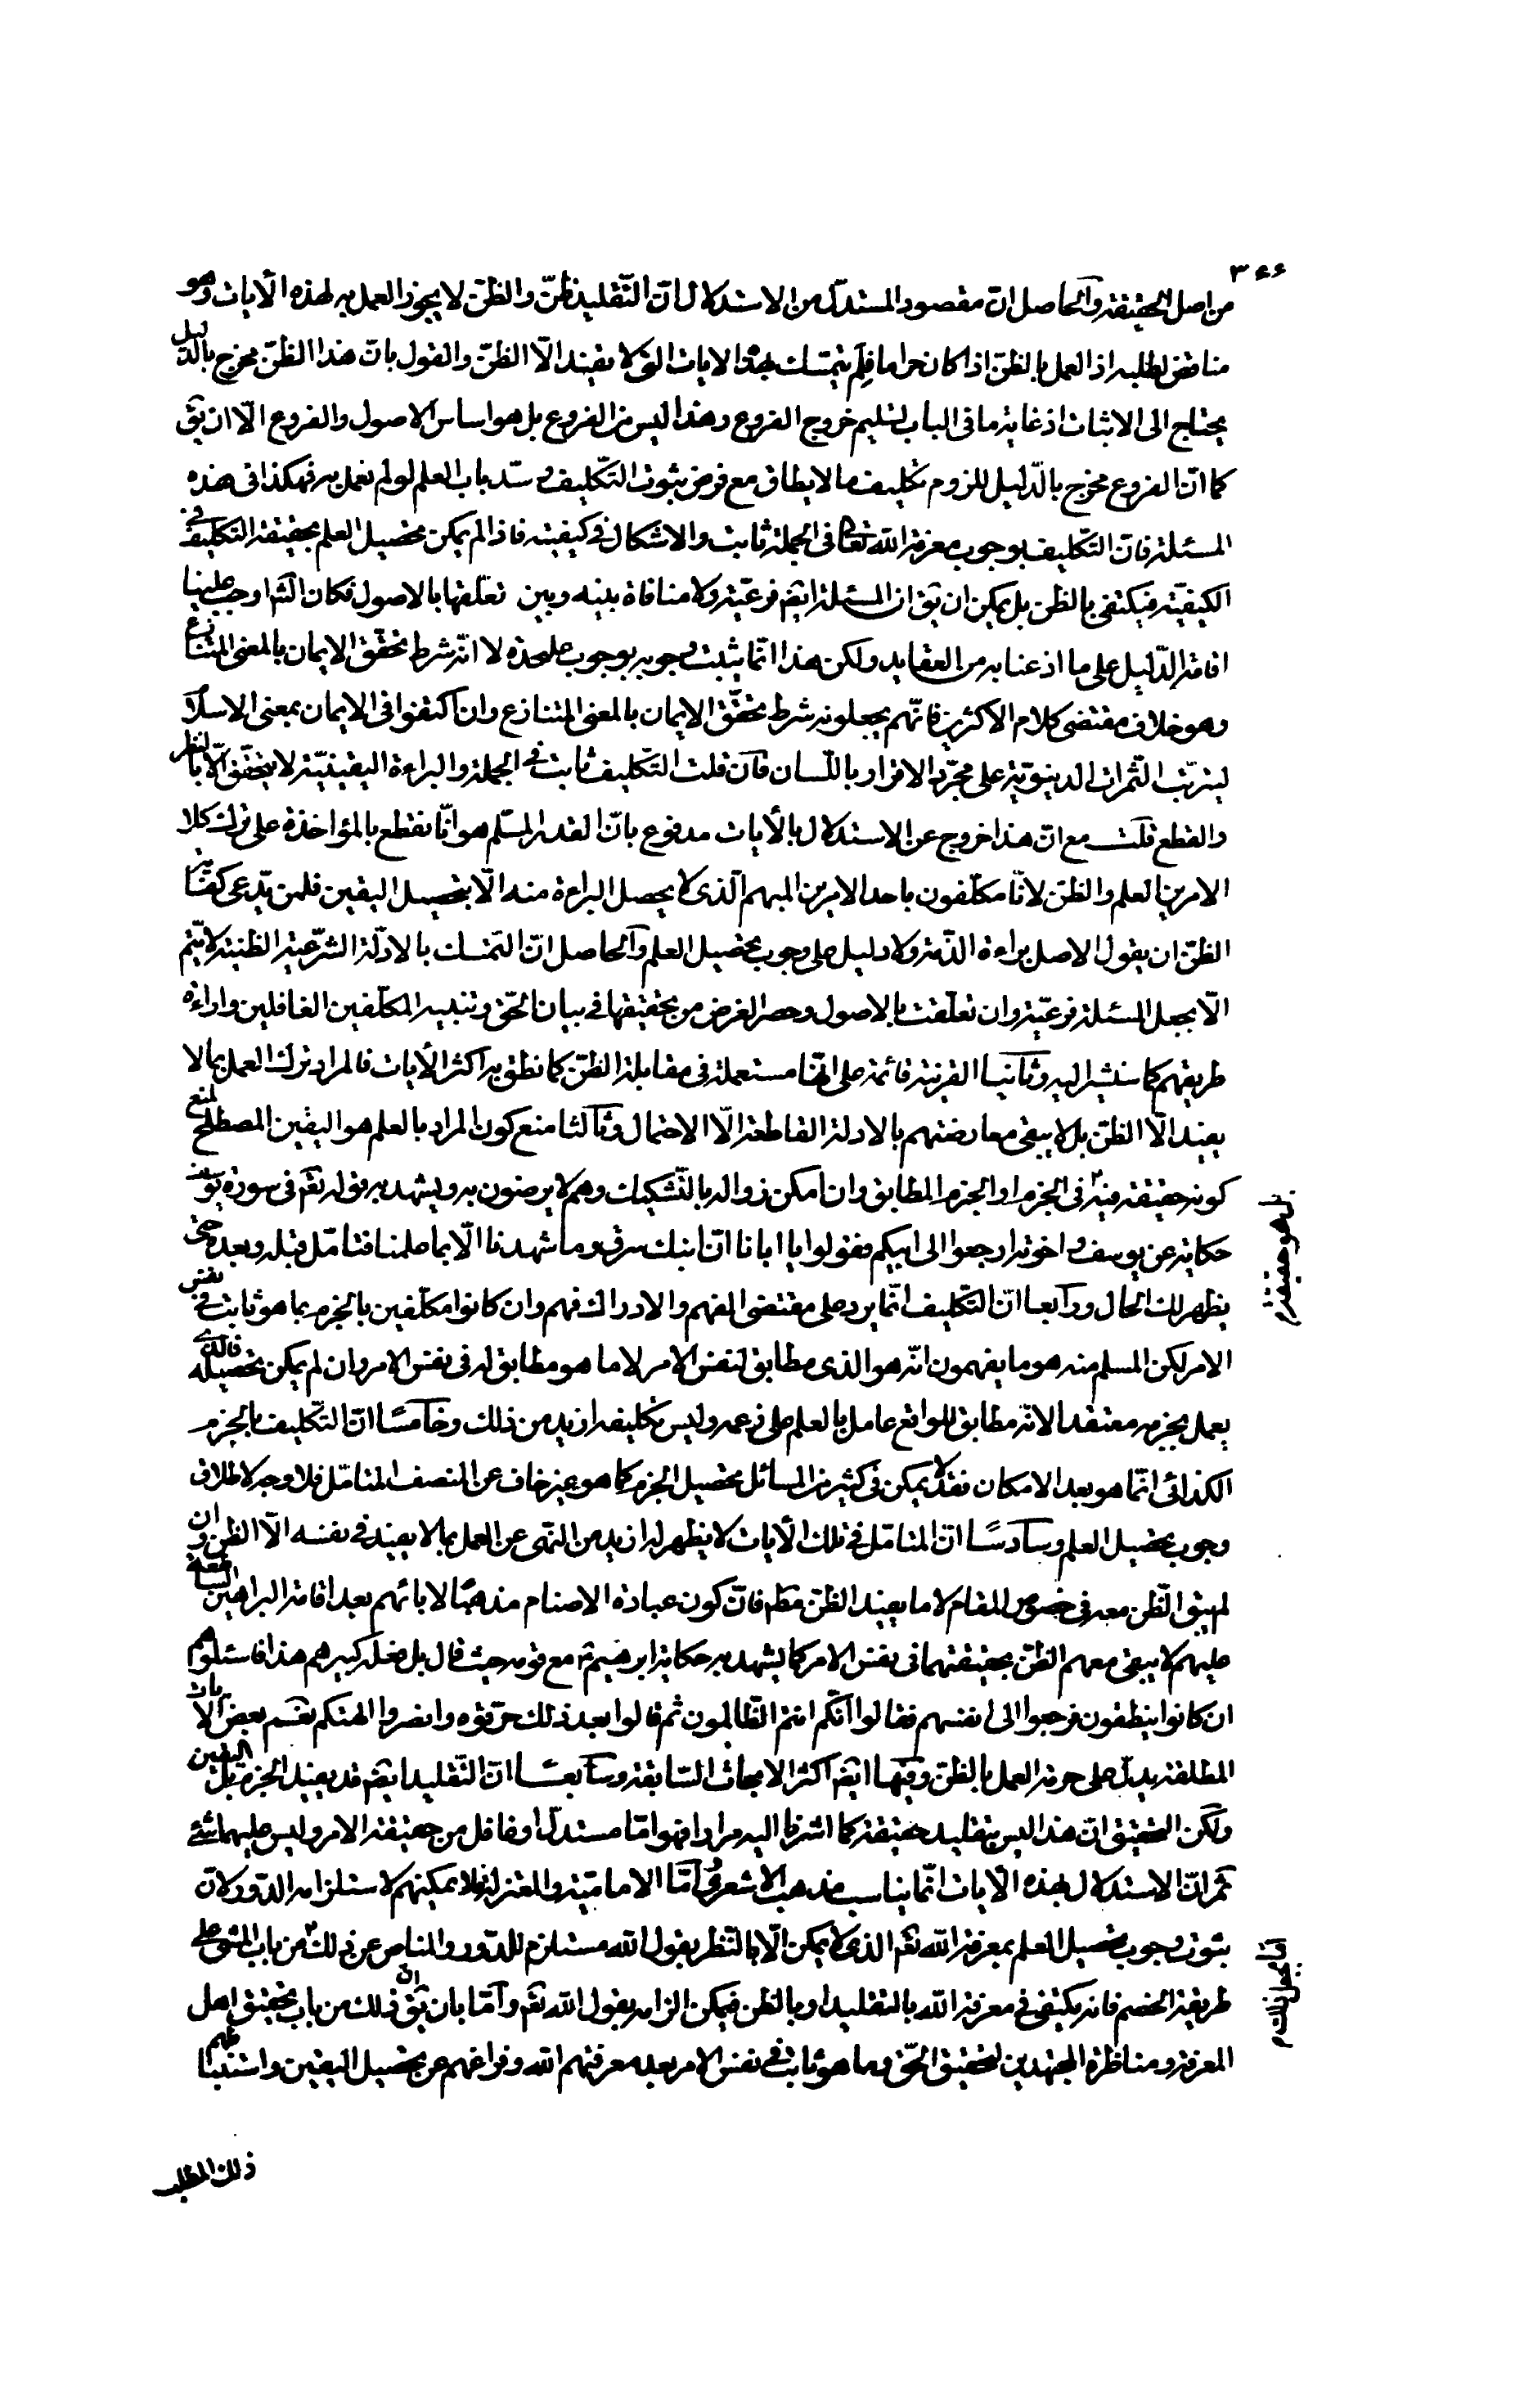 ٣٤٤
من اصل الحقيقة والحاصل ان مقصود المستدل من الاستدلال ان التقليد ظن والظن لا يجوز العمل به لهذه الآيات وهو
مناقض لمطلبه اذ العمل بالظن اذا كان حراما فلم يتمسك بهذه الآيات التي لا يفيد الا الظن والقول بان هذا الظن مخرج بالدليل
يحتاج الى الاثبات اذ غاية ما في الباب تسليم خروج الفروع وهذا ليس من الفروع بل هو اساس الاصول والفروع الا ان يق
كما ان الفروع مخرج بالدليل للزوم تكليف ما لا يطاق مع فرض ثبوت التكليف وسد باب العلم لو لم نعمل به فهكذا في هذه
المسئلة فان التكليف بوجوب معرفة الله تعالى في الجملة ثابت والاشكال في كيفيته فاذا لم يمكن تحصيل العلم بحقيقة التكليف في
الكيفية فيكتفى بالظن بل يمكن ان يق ان المسئلة ايضا فرعية ولا منافاة بينه وبين تعلقها بالاصول فكان الشارع اوجب علينا
اقامة الدليل على ما اذعنا به من العقايد ولكن هذا انما يثبت وجوبه بوجوب على حده لا انه شرط تحقق الايمان بالمعنى المتنازع
وهو خلاف مقتضى كلام الاكثرين فانهم يجعلونه شرط تحقق الايمان بالمعنى المتنازع وان اكتفوا في الايمان بمعنى الاسلام
لترتب الثمرات الدنيوية على مجرد الاقرار باللسان فان قلت التكليف ثابت في الجملة والبراءة اليقينية لا يتحقق الا بالنظر
والقطع قلت مع ان هذا خروج عن الاستدلال بالآيات مدفوع بان القدر المسلم هو انا نقطع بالمؤاخذة على ترك كلا
الامرين العلم والظن لا انا مكلفون باحد الامرين المبهم الذي لا يحصل البراءة منه الا بتحصيل اليقين فلمن يدعى كفاية
الظن ان يقول الاصل براءة الذمة ولا دليل على وجوب تحصيل العلم والحاصل ان التمسك بالادلة الشرعية الظنية لا يتم
الا بجعل المسئلة فرعية وان تعلقت بالاصول وحصر الغرض من تحقيقها في بيان الحق وتنبيه المكلفين الغافلين واراءة
طريقهم كما سنشير اليه وثانيا القرينة قائمة على انها مستعملة في مقابلة الظن كما نطق به اكثر الآيات فالمراد ترك العمل بما لا
يفيد الا الظن بل لا يبقى معارضتهم بالادلة القاطعة الا الاحتمال وثالثا منع كون المراد بالعلم هو اليقين المصطلح لمنع
كونه حقيقة فيه في الجزم او الجزم المطابق وان امكن زواله بالتشكيات وهم لا يرضون به ويشهد به قوله تعم في سورة يوسف
حكاية عن يوسف واخوته ارجعوا الى ابيكم فقولوا يا ابانا ان ابنك سرق وما شهدنا الا بما علمنا فتامل قبله وبعده حتى
يظهر لك الحال ورابعا ان التكليف انما يرد على مقتضى الفهم والادراك فهم وان كانوا مكلفين بالجزم بما هو ثابت في نفس
الامر لكن المسلم منه هو ما يفهمون انه هو الذي مطابق لنفس الامر لا ما هو مطابق له في نفس الامر وان لم يمكن تحصيله فالذي
يعمل بجزمه معتقدا لانه مطابق للواقع عامل بالعلم على زعمه وليس تكليفه ازيد من ذلك وخامسا ان التكليف بالجزم
الكذائي انما هو بعد الامكان فقد لا يمكن في كثير من المسائل تحصيل الجزم كما هو غير خاف عن المنصف المتامل فلا وجه لاطلاق
وجوب تحصيل العلم وسادسا ان المتامل في تلك الآيات لا يظهر له ازيد من النهى عن العمل بما لا يفيد في نفسه الا الظن وان
لم يبق الظن معه في خصوص المقام لا ما يفيد الظن مطم فان كون عبادة الاصنام مذهبا لابائهم بعد اقامة البراهين الساطعة
عليهم لا يبقى معهم الظن بحقيقتها في نفس الامر كما يشهد به حكاية ابرهيم ع مع قومه حيث قال بل فعله كبيرهم هذا فاسئلوهم
ان كانوا ينطقون فرجعوا الى انفسهم فقالوا انكم انتم الظالمون ثم قالوا بعد ذلك حرقوه وانصروا الهتكم نعم بعض الآيات
المطلقة يدل على حرمة العمل بالظن وفيها ايضا اكثر الابحاث السابقة وسابعا ان التقليد ايضا قد يفيد الجزم بل اليقين
ولكن التحقيق ان هذا ليس بتقليد حقيقة كما اشرنا اليه مرارا فهو اما مستدل او غافل من حقيقة الامر وليس عليهما شئ
ثم ان الاستدلال بهذه الآيات انما يناسب مذهب الاشعري واما الامامية والمعتزلة فلا يمكنهم لاستلزامه الدور لان
ثبوت وجوب تحصيل العلم بمعرفة الله تعم الذي لا يمكن الا بالنظر بقول الله مستلزم للدور والمناص عن ذلك من باب المشى على
طريقة الخصم فانه يكتفى في معرفة الله بالتقليد او بالظن فيمكن الزامه بقول الله تعم واما بان يق ان ذلك من باب تحقيق اهل
المعرفة ومناظرة المجتهدين لتحقيق الحق وما هو ثابت في نفس الامر بعد معرفتهم الله وفراغهم عن تحصيل اليقين واستنباطهم
ذلك المطلب
بل هو حقيقة م
اما بجعل ذلك م